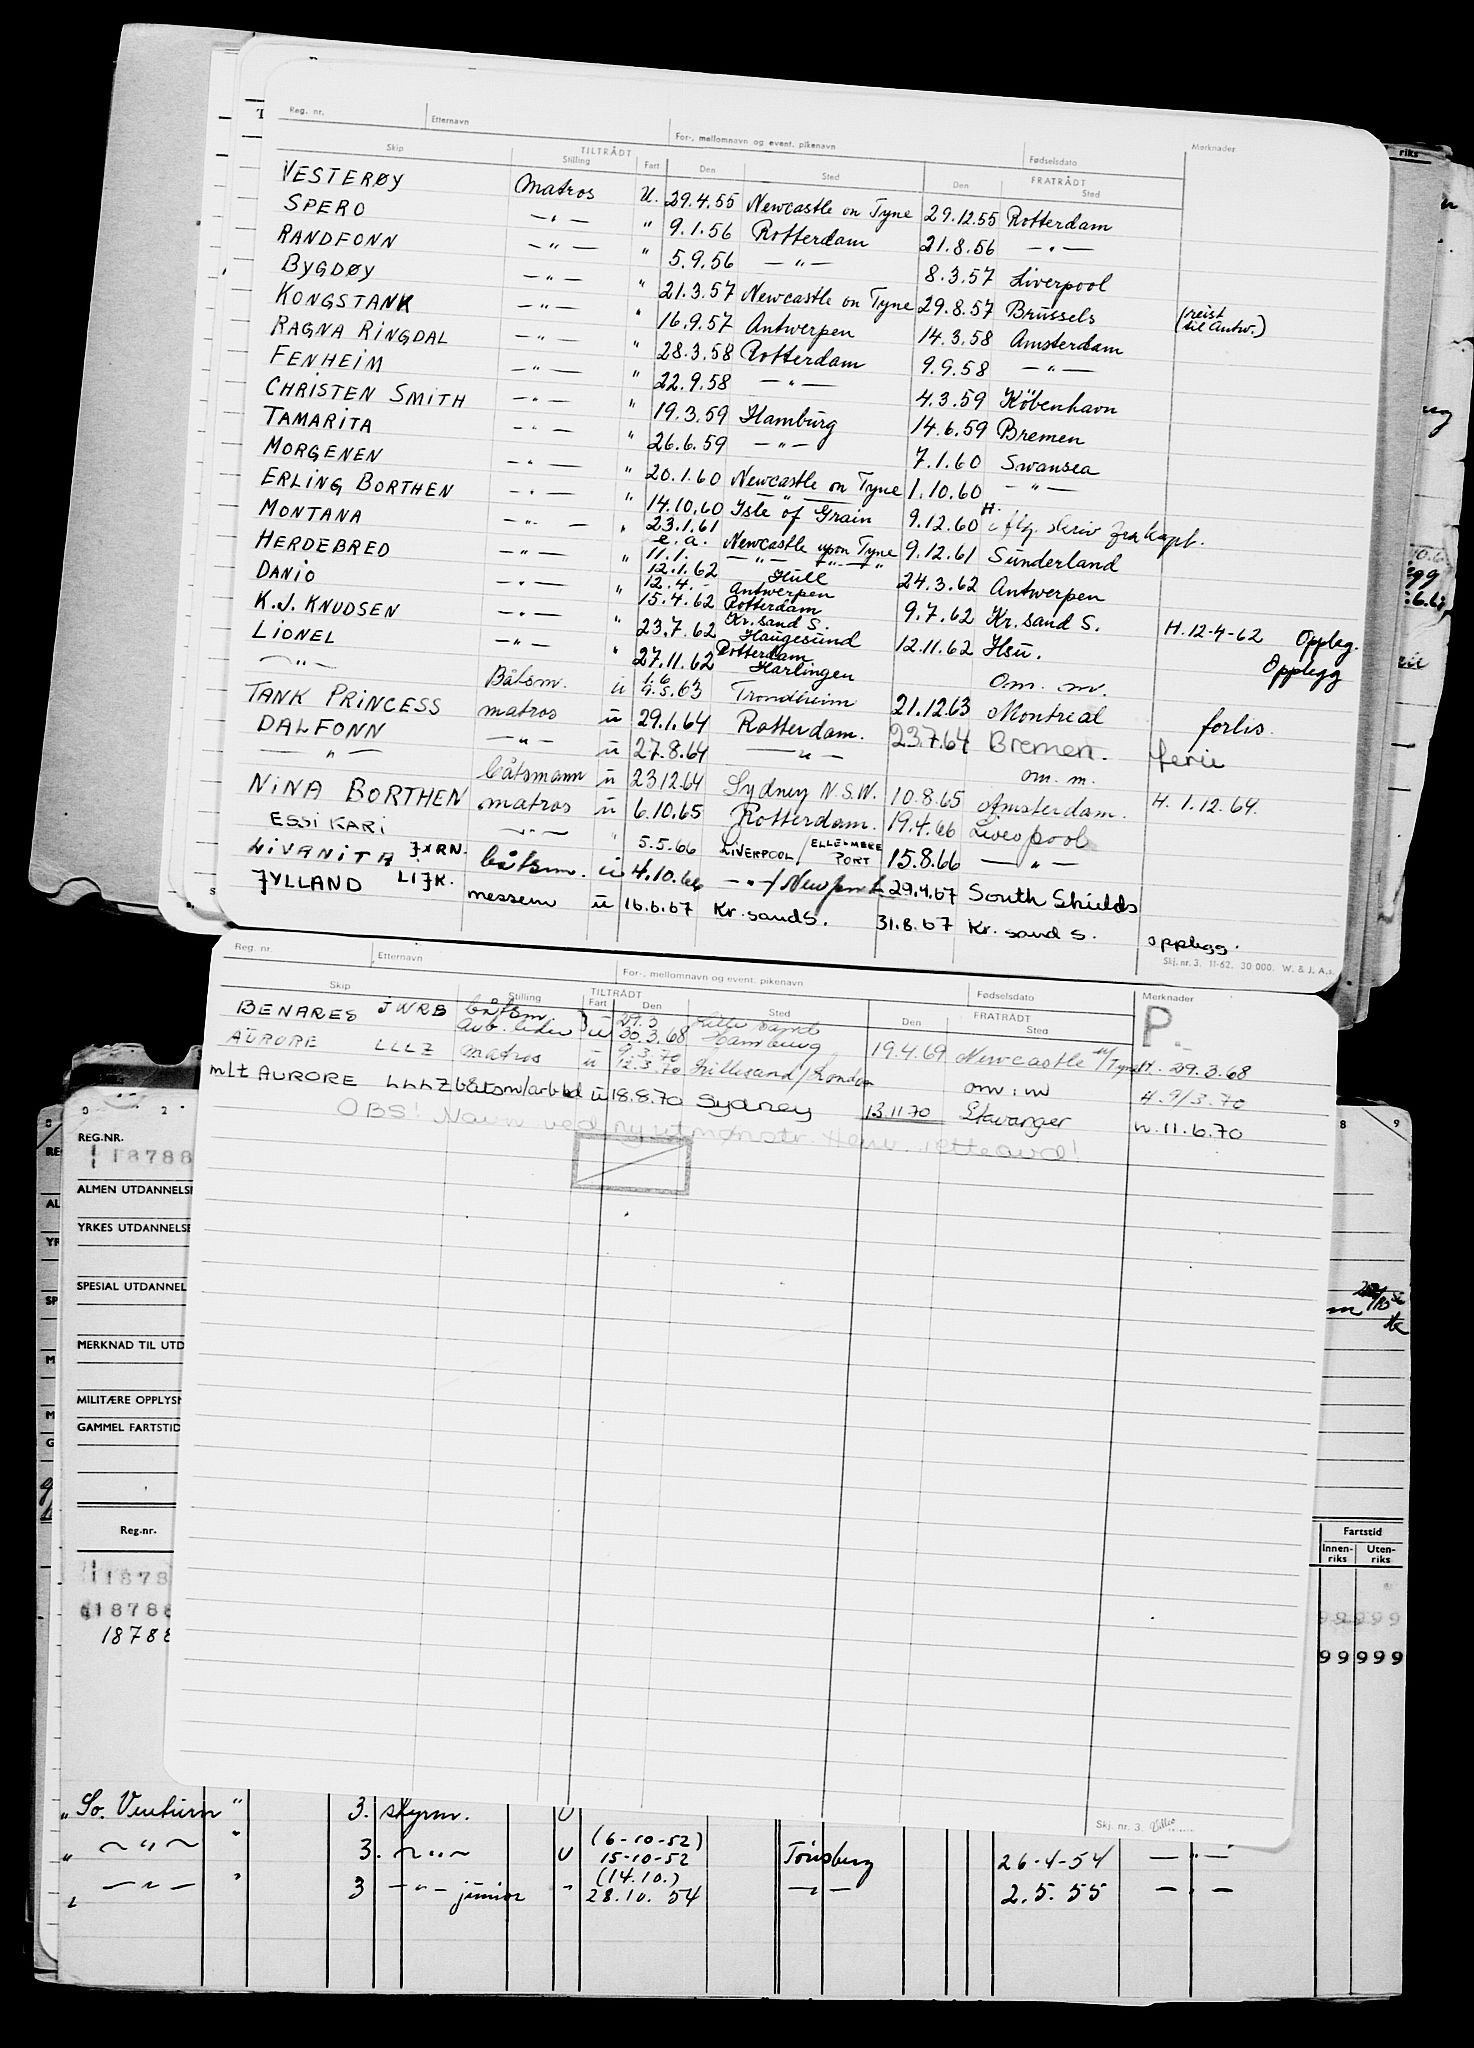 Reg. nr. Etternavn For-, mellomnavn og event. pikenavn Fødselsdato Merknader
Skip TILTRÅDT FRATRÅDT
Stilling Fart Den Sted Den Sted
VESTERØY matros U. 29.4.55 Newcastle on Tyne 29.12.55 Rotterdam
SPERO —"— " 9.1.56 Rotterdam 21.8.56 —"—
RANDFONN —"— " 5.9.56 —"— 8.3.57 Liverpool
BYGDØY —"— " 21.3.57 Newcastle on Tyne 29.8.57 Brüssels (reist til Antw.)
KONGSTANK —"— " 16.9.57 Antwerpen 14.3.58 Amsterdam
RAGNA RINGDAL —"— " 28.3.58 Rotterdam 9.9.58 —"—
FENHEIM —"— " 22.9.58 —"— 4.3.59 København
CHRISTEN SMITH —"— " 19.3.59 Hamburg 14.6.59 Bremen
TAMARITA —"— " 26.6.59 —"— 7.1.60 Swansea
MORGENEN —"— " 20.1.60 Newcastle on Tyne 1.10.60 —"—
ERLING BORTHEN —"— " 14.10.60 Isle of Grain 9.12.60 H. i flg. skriv fra kapt.
MONTANA —"— " 23.1.61 e.a. Newcastle upon Tyne 9.12.61 Sunderland
HERDEBRED —"— " 11.1. 12.1.62 —"— Hull 24.3.62 Antwerpen
DANIO —"— " 12.4.- 15.4.62 Antwerpen Rotterdam 9.7.62 Kr.sand S. H.12-4-62 Oppleg.
K.J. KNUDSEN —"— " 23.7.62 Kr.sand S. Haugesund 12.11.62 Hsu. Opplegg
LIONEL —"— " 27.11.62 Rotterdam Harlingen Om. m.
—"— Båtsm. u 1.6 9.5.63 Trondheim 21.12.63 Montreal forlis.
TANK PRINCESS matros u 29.1.64 Rotterdam. 23.7.64 Bremen. ferie
DALFONN —"— u 27.8.64 —"— om. m.
—"— båtsmann u 23.12.64 Sydney N.S.W. 10.8.65 Amsterdam. H. 1.12.64.
NINA BORTHEN matros u 6.10.65 Rotterdam. 19.4.66 Liverpool
ESSI KARI —"— " 5.5.66 LIVERPOOL / ELLESMERE PORT 15.8.66 —"—
LIVANITA JXRN. båtsm. u 4.10.66 —"—/Newport 29.4.67 South Shields
JYLLAND LIJK. messem u 16.6.67 Kr.sand S. 31.8.67 Kr. sand S. opplegg.
Skj. nr. 3. 11-62. 30 000. W. & J. A.s.
Reg. nr. Etternavn For-, mellomnavn og event. pikenavn Fødselsdato Merknader
Skip TILTRÅDT FRATRÅDT
Stilling Fart Den Sted Den Sted
P.
BENARES JWRB båtsm. arb. leder } u 29.3 30.3.68 Lillesand Hamburg 19.4.69 Newcastle u/Tyne H. 29.3.68
AURORE LLLZ matros u 9.3.70 12.3.70 Lillesand/London om: m H. 9/3.70
m/t AURORE LLLZ båtsm/arb ld u 18.8.70 Sydney 13.11.70 Stavanger H. 11.6.70
OBS! Navn ved ny utmønstr.
Skj. nr. 3.
8 9
REG.NR.
18788
ALMEN UTDANNELSE
YRKES UTDANNELSE
SPESIAL UTDANNEL
MERKNAD TIL UTD
MILITÆRE OPPLYSN
GAMMEL FARTSTID
Reg.nr. Fartstid
Innen-riks Uten-riks
1878
18788 99999
18788 99999
" So. Venturn " 3. styrm. U
" —"— " 3. —"— U (6-10-52) 15-10-52 Tønsberg 26-4-54 —"—
—"— " 3 —"— junior " (14.10.) 28.10.54 —"— 2.5.55 —"—